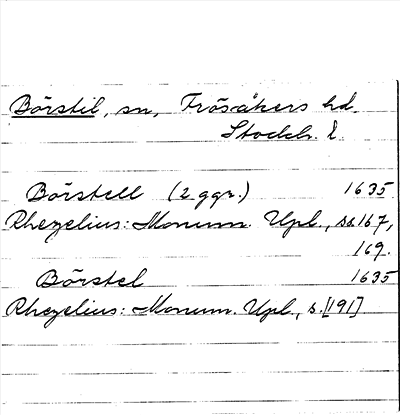 Börstil, sn, Frösåkers hd.
Stockh. l.
Börstell (2 ggr.) 1635
Rhezelius: Monum. Upl., ss. 167,
169.
Börstel 1635
Rhezelius: Monum. Upl., s. [191]